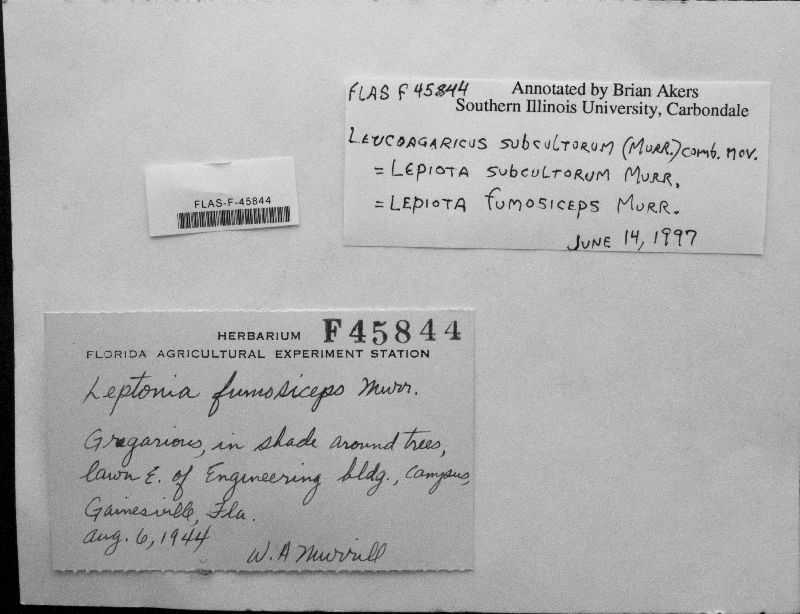 FLAS F 45844
Annotated by Brian Akers
Southern Illinois University, Carbondale
LEUCOAGARICUS SUBCULTORUM (MURR.) comb. nov.
= LEPIOTA SUBCULTORUM MURR.
= LEPIOTA fumosiceps MURR.
JUNE 14, 1997
FLAS-F-45844
HERBARIUM F45844
FLORIDA AGRICULTURAL EXPERIMENT STATION
Leptonia fumosiceps Murr.
Gregarious, in shade around trees,
lawn E. of Engineering bldg., campus,
Gainesville, Fla.
Aug. 6, 1944
W. A Murrill